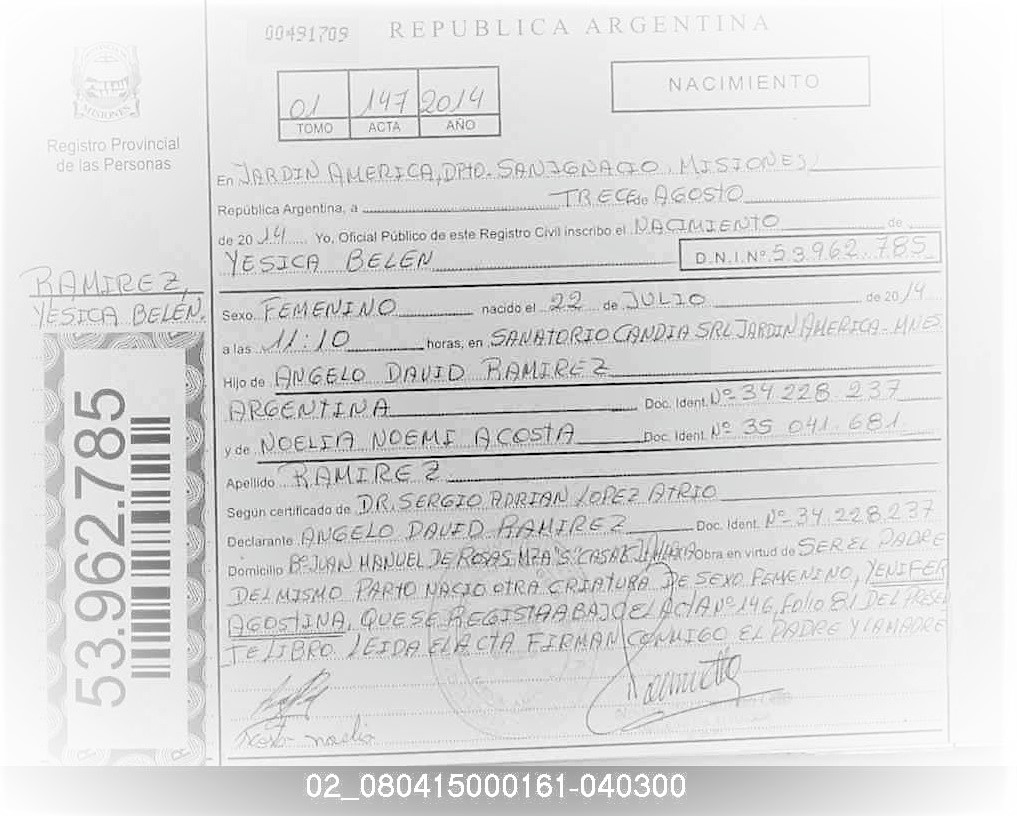 00491709
REPUBLICA ARGENTINA
MISIONES
Registro Provincial
de las Personas
01 147 2014
TOMO ACTA AÑO
NACIMIENTO
En JARDIN AMERICA, DPTO. SAN IGNACIO, MISIONES,
República Argentina, a TRECE de AGOSTO
de 2014 Yo, Oficial Público de este Registro Civil inscribo el NACIMIENTO de
YESICA BELEN D.N.I.Nº 53.962.785
RAMIREZ,
YESICA BELEN.
Sexo FEMENINO nacido el 22 de JULIO de 2014
a las 11:10 horas, en SANATORIO CANDIA SRL JARDIN AMERICA-MNES
Hijo de ANGELO DAVID RAMIREZ
ARGENTINA Doc. Ident. Nº 34 228 237
y de NOELIA NOEMI ACOSTA Doc. Ident. Nº 35 041 681
Apellido RAMIREZ
Según certificado de DR. SERGIO ADRIAN LOPEZ ATRIO
Declarante ANGELO DAVID RAMIREZ Doc. Ident. Nº 34.228.237
Domicilio Bº JUAN MANUEL DE ROSAS MZA "S" CASA Obra en virtud de SER EL PADRE
DEL MISMO PARTO NACIO OTRA CRIATURA DE SEXO FEMENINO, YENIFER
AGOSTINA, QUE SE REGISTRA BAJO EL ACTA Nº 146, FOLIO 81 DEL PRESEN
TE LIBRO. LEIDA EL ACTA FIRMAN CONMIGO EL PADRE Y LA MADRE
53.962.785
noelia
02_080415000161-040300